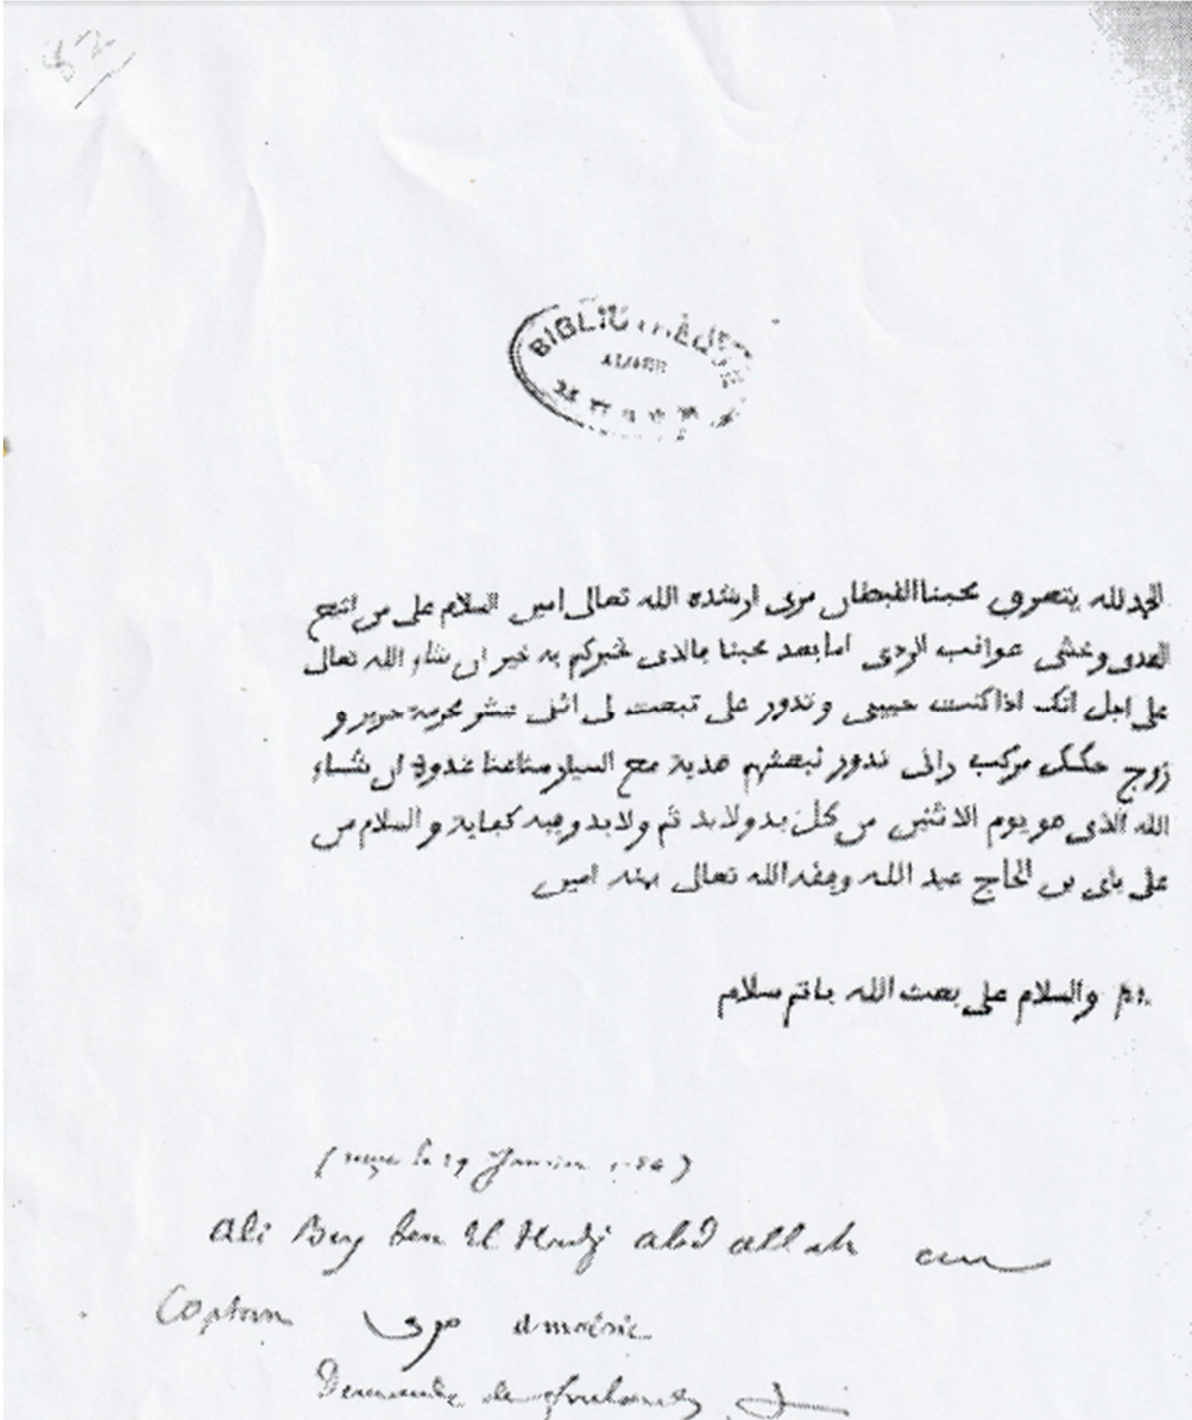 82
BIBLIOTHÈQUE
ALGER
الحمد لله يتصرف محبنا القبطان مرى ارشده الله تعالى امين السلام على من اتبع
الهدى وخشى عواقب الردى اما بعد محبنا بالذى نخبركم به خير ان شاء الله تعالى
على اجل انك اذا كنت حبيبى وتدور على تبعث لى اثنى عشر محرمة حرير و
زوج حكك مركب رانى ندور نبعثهم هدية مع السيار متاعنا غدوة ان شاء
الله الذى هو يوم الاثنين من كل بد ولا بد ثم ولا بد وفيه كفاية والسلام من
على باى بن الحاج عبد الله وفقه الله تعالى بمنه امين
والسلام على بعث الله باتم سلام
(reçu le 29 Janvier)
Ali Bey ben El Hadj abd allah au
Captain مرى
Demande de foulards